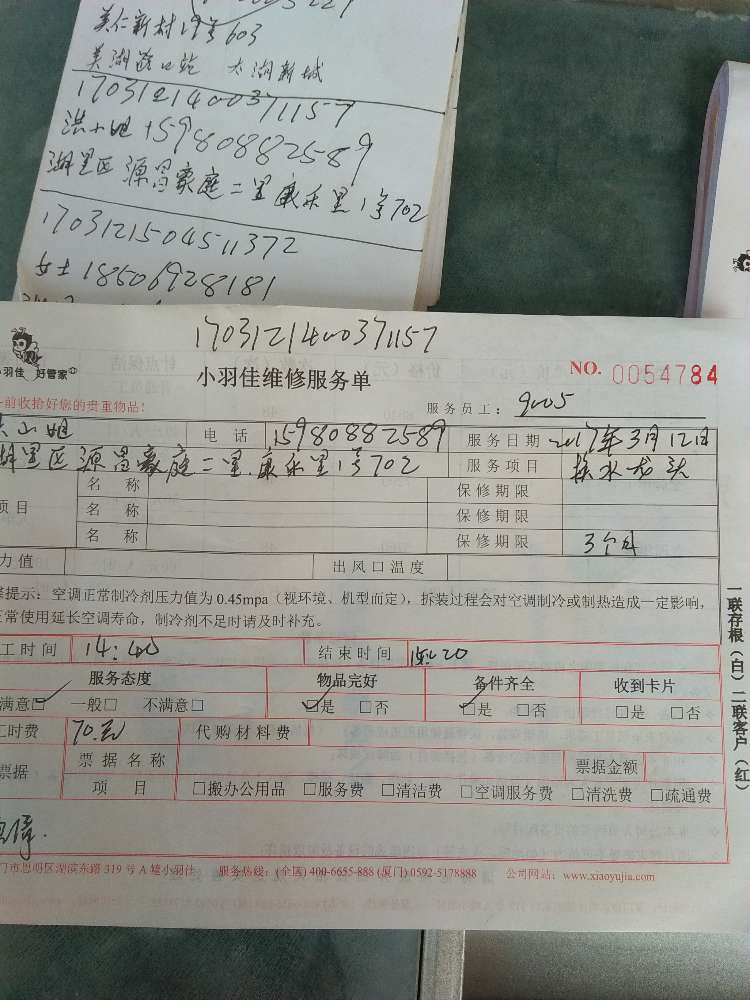 美仁新村19号603
美湖路口站 太湖新城
17031214003711157
洪小姐 15980882589
湖里区源昌豪庭二里康乐里1号702
1703121504511372
女士 18506928181
1703121400371157
小羽佳 好管家
小羽佳维修服务单
NO. 0054784
前收拾好您的贵重物品!
服务员工: 9005
小姐 电话 15980882589 服务日期 2017年3月12日
湖里区源昌豪庭二里.康乐里1号702 服务项目 换水龙头
项目 名称 保修期限
名称 保修期限
名称 保修期限 3个月
力值 出风口温度
提示:空调正常制冷剂压力值为0.45mpa(视环境、机型而定),拆装过程会对空调制冷或制热造成一定影响,
正常使用延长空调寿命,制冷剂不足时请及时补充。
工时间 14:40 结束时间 15:20
服务态度 物品完好 备件齐全 收到卡片
满意☑ 一般□ 不满意□ ☑是 □否 ☑是 □否 □是 □否
工时费 70.元 代购材料费
票据 票据名称 票据金额
项目 □搬办公用品 □服务费 □清洁费 □空调服务费 □清洗费 □疏通费
门市思明区湖滨东路319号A幢小羽佳 服务热线:(全国)400-6655-888(厦门)0592-5178888 公司网站:www.xiaoyujia.com
一联存根(白)二联客户(红)